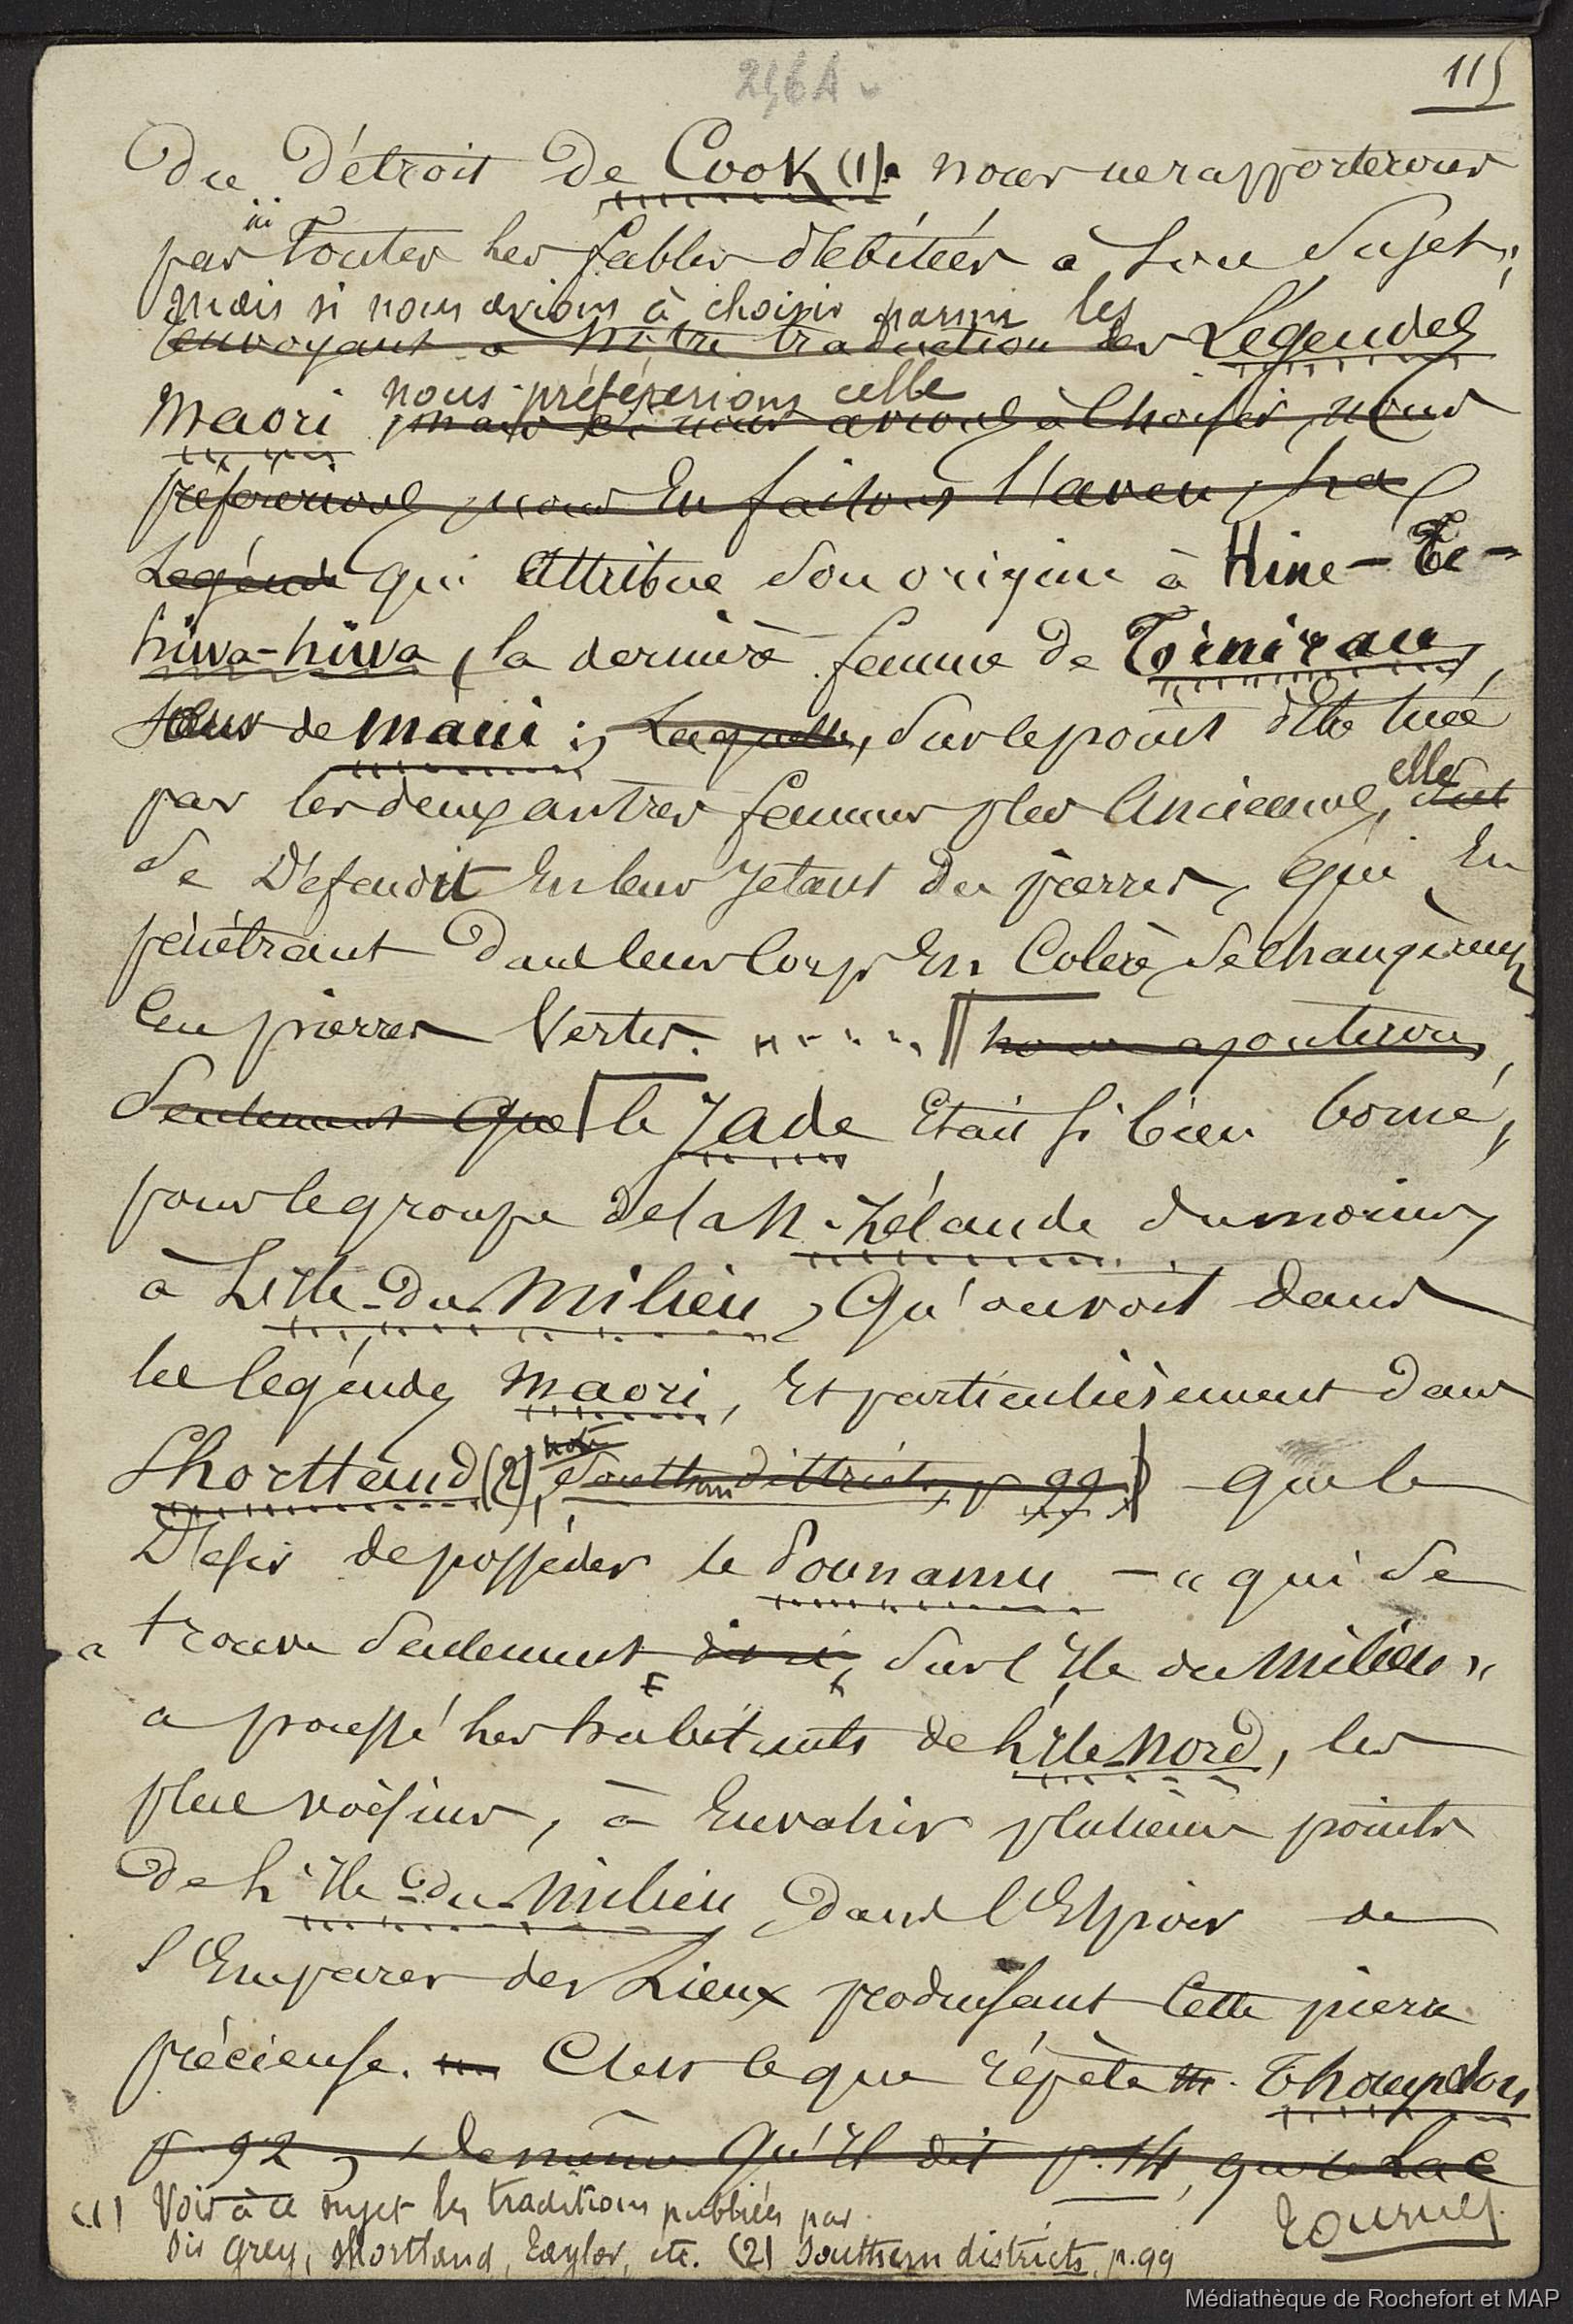 246A
115
Du Détroit de Cook (1). nous ne rapporterons
ici
pas toutes les fables débitées à son sujet;
mais si nous avions à choisir parmi les
renvoyant à notre traduction des Légendes
nous préférerions celle
Maori mais si nous avions à choisir, nous
préférerions, nous en faisons l'aveu, la
Légende qui attribue son origine à Hine-Te-
hiwa-hiwa, la dernière femme de Tinirau,
soeur de Maui; Laquelle, sur le point d'être tuée
elle
par les deux autres femmes plus anciennes,
se défendit en leur jetant des pierres, qui en
pénétrant dans leur corps en colère, se changèrent
en pierres vertes. ..... || nous ajouterons,
Seulement que le Jade était si bien borné,
pour le groupe de la N. Zélande du moins,
à L'Ile-du-Milieu, qu'on voit dans
les légendes Maori, et particulièrement dans
note
Shorttand (2), Southern districts, p 99) que le
Désir de posséder le Pounamu — "qui se
trouve seulement sur l'Ile du Milieu"
a poussé les habitants de l'Ile Nord, les
plus voisins, à envahir plusieurs points
de l'Ile-du-Milieu dans l'Espoir de
s'Emparer des Lieux produisant cette pierre
précieuse. C'est ce que répète M. Thompson
p. 92, de même qu'Il dit p. 14, que le Lac
(1) Voir à ce sujet les traditions publiées par
Sir Grey, Shortland, Taylor, etc. (2) Southern districts, p. 99
Tournez.
Médiathèque de Rochefort et MAP